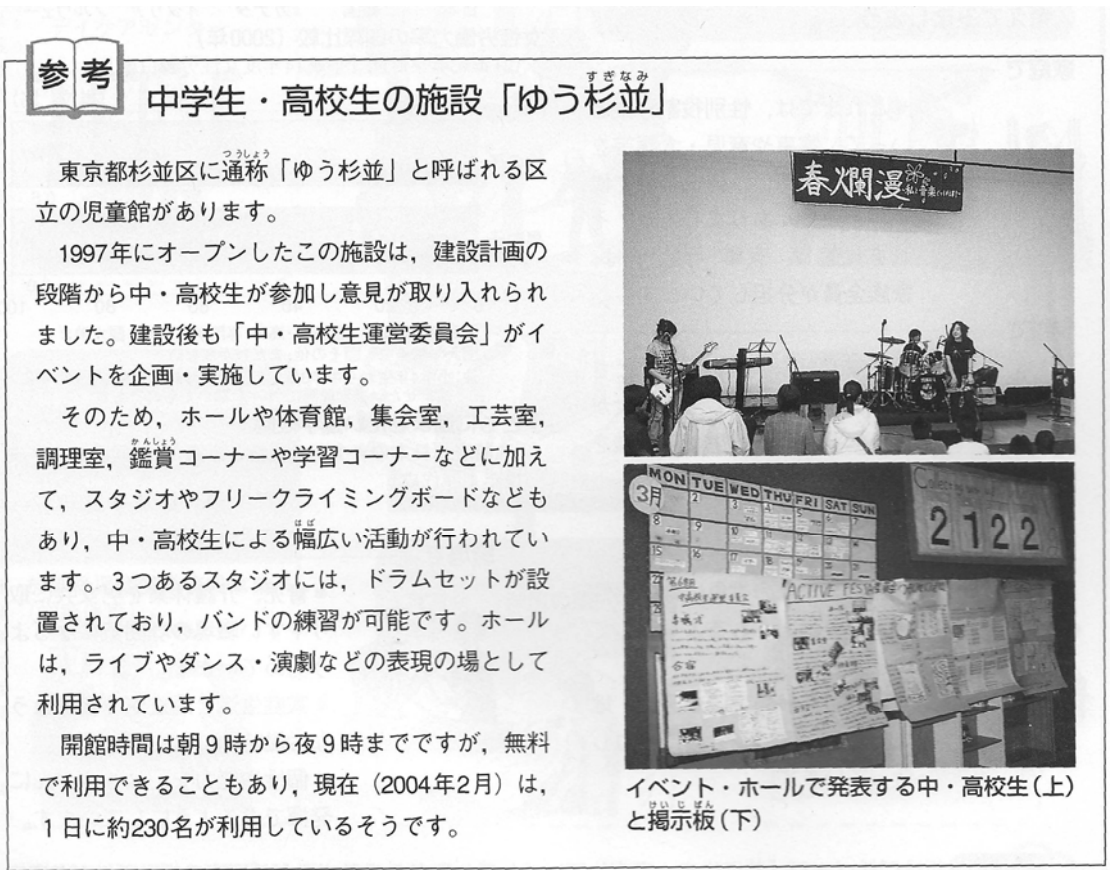 参考
中学生・高校生の施設「ゆう杉並」
すぎなみ
東京都杉並区に通称「ゆう杉並」と呼ばれる区
つうしょう
立の児童館があります。
1997年にオープンしたこの施設は，建設計画の
段階から中・高校生が参加し意見が取り入れられ
ました。建設後も「中・高校生運営委員会」がイ
ベントを企画・実施しています。
そのため，ホールや体育館，集会室，工芸室，
調理室，鑑賞コーナーや学習コーナーなどに加え
かんしょう
て，スタジオやフリークライミングボードなども
あり，中・高校生による幅広い活動が行われてい
はば
ます。3つあるスタジオには，ドラムセットが設
置されており，バンドの練習が可能です。ホール
は，ライブやダンス・演劇などの表現の場として
利用されています。
開館時間は朝9時から夜9時までですが，無料
で利用できることもあり，現在（2004年2月）は，
1日に約230名が利用しているそうです。
春爛漫
MON TUE WED THU FRI SAT SUN
3月
2122
ACTIVE FES
合宿
イベント・ホールで発表する中・高校生（上）
と掲示板（下）
けいじばん